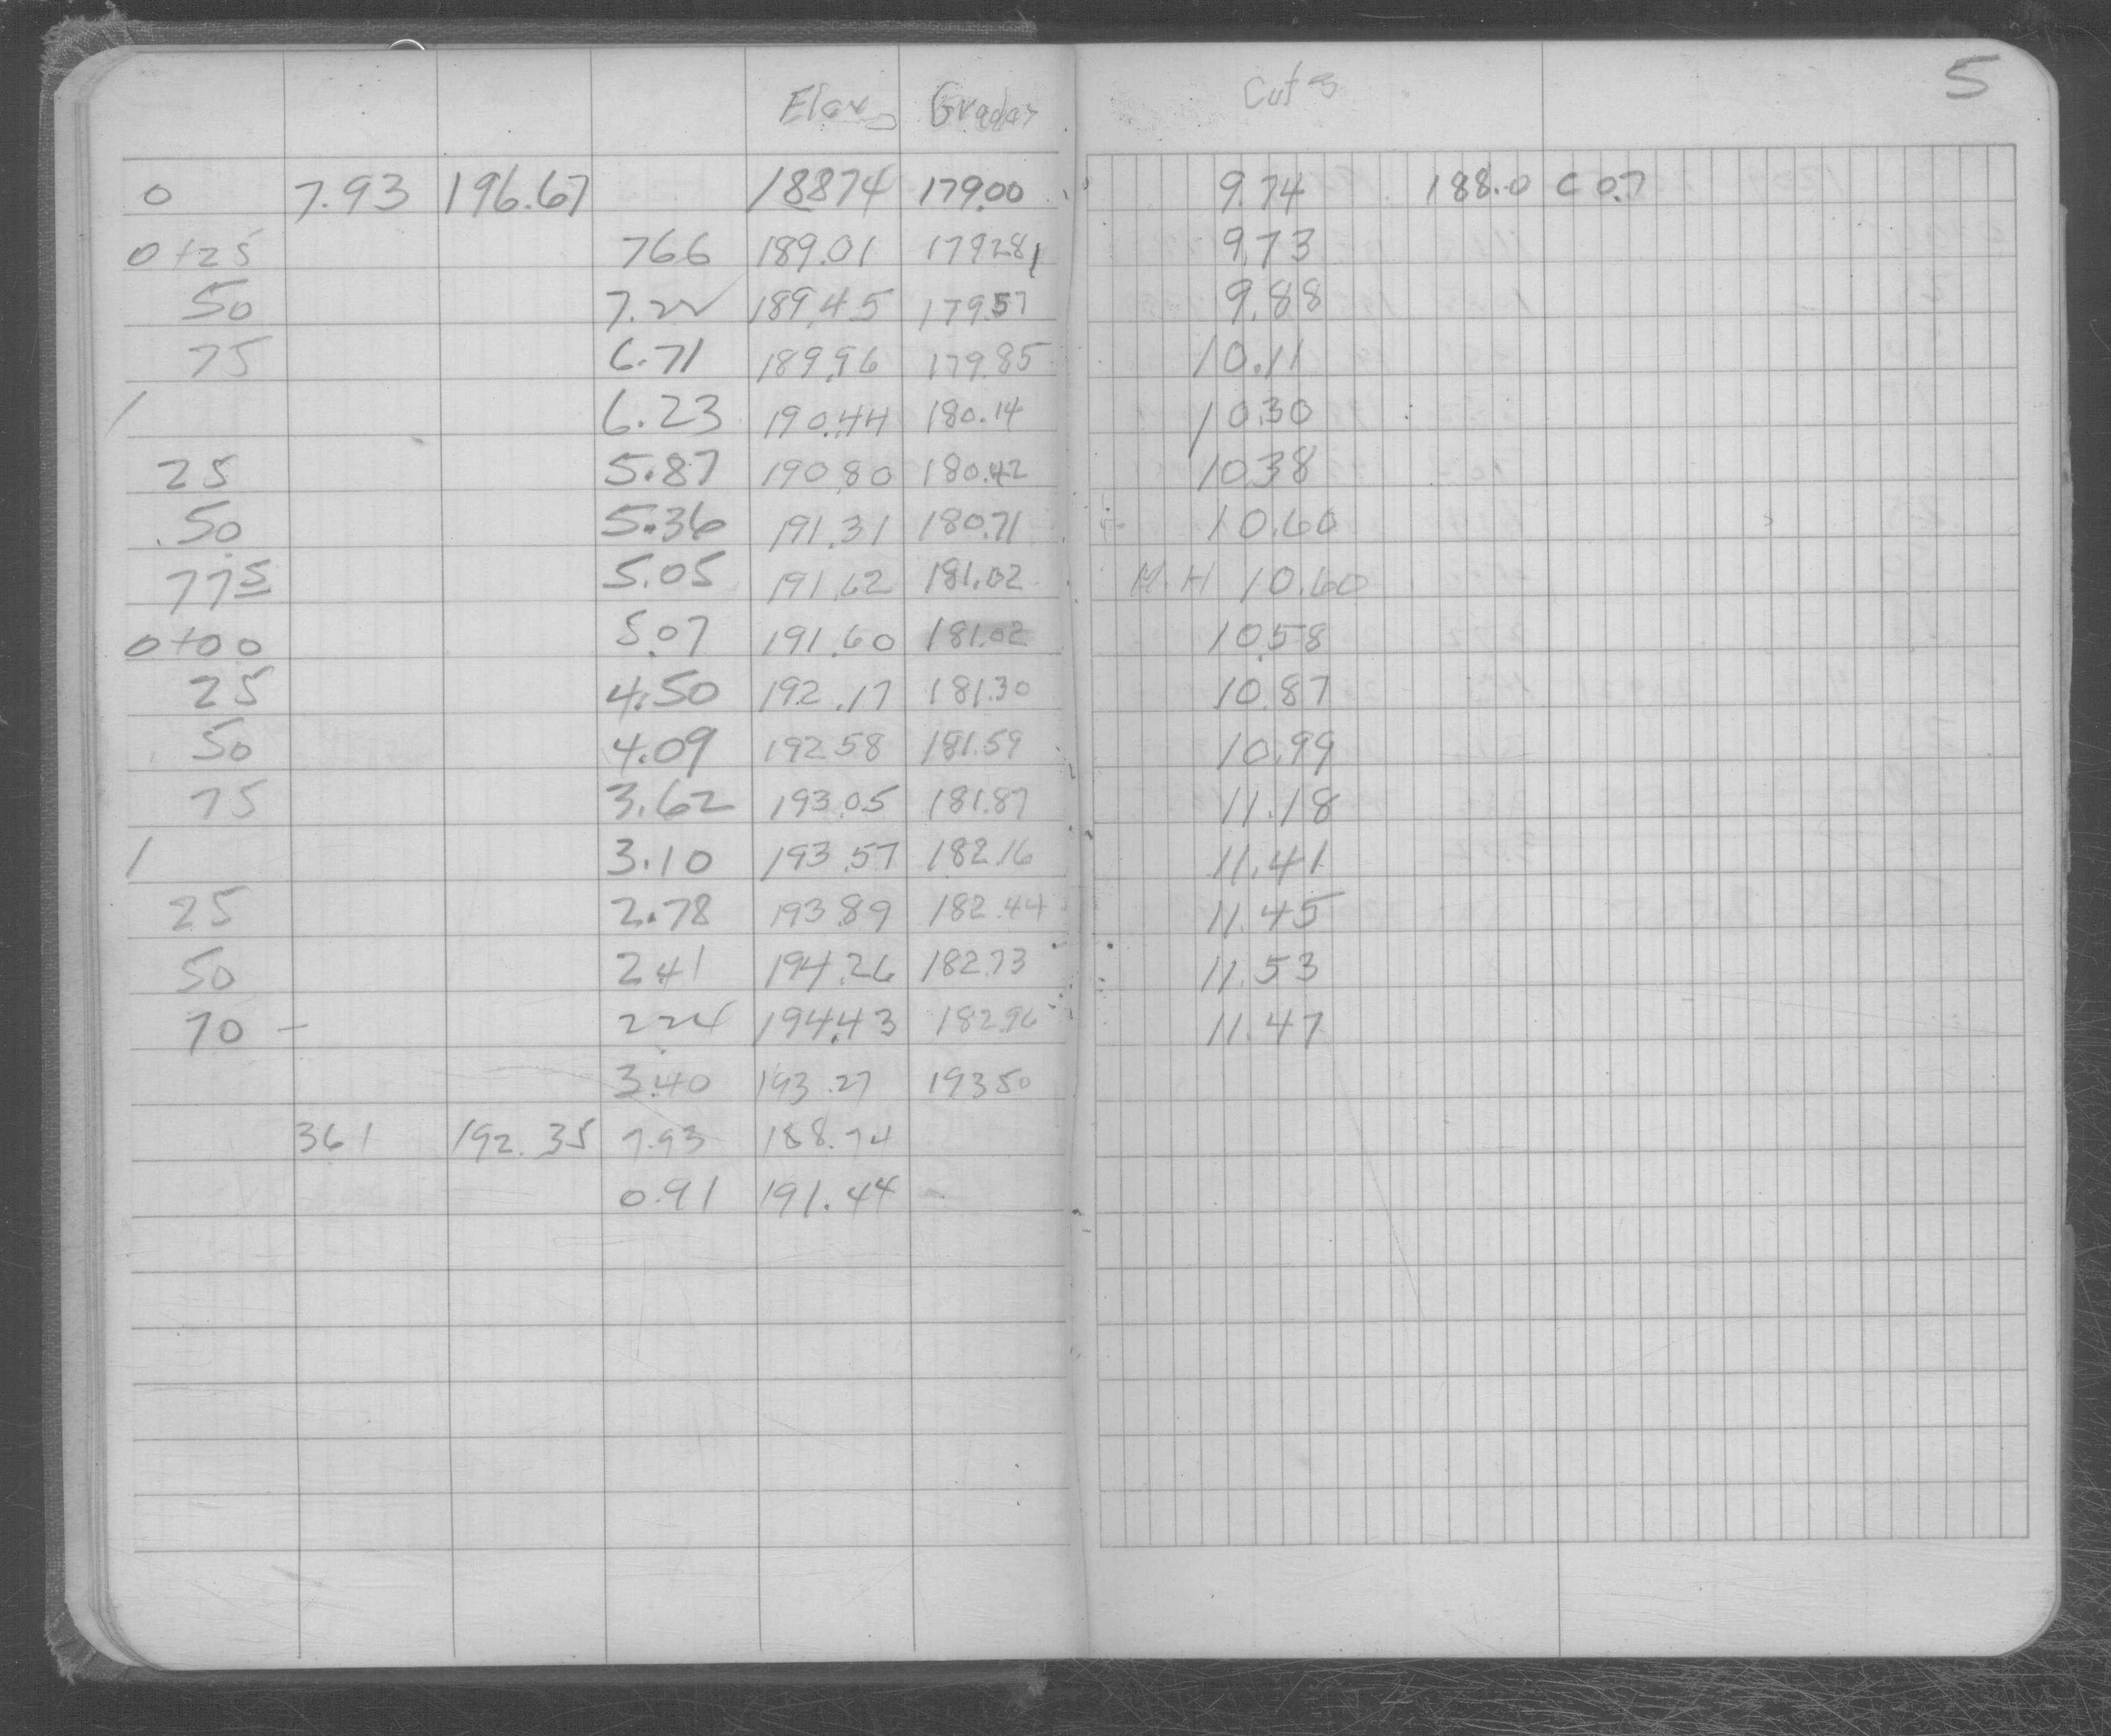 Elev Grades Cuts 5
0 7.93 196.67 188 74 179.00 9.74 188.0 C 0.7
0+25 7 66 189.01 179 28 9.73
50 7.22 189.45 179.57 9.88
75 6.71 189.96 179.85 10.11
1 6.23 190.44 180.14 10 30
25 5.87 190 80 180.42 10 38
50 5.36 191.31 180.71 10.60
77 5 5.05 191.62 181.02 M.H 10.60
0+00 5.07 191.60 181.02 10.58
25 4.50 192.17 181.30 10.87
50 4.09 192 58 181.59 10.99
75 3.62 193.05 181.87 11.18
1 3.10 193.57 182.16 11.41
25 2.78 193 89 182.44 11.45
50 2 41 194.26 182.73 11.53
70 - 2 24 194.43 182.96 11.47
3.40 193.27 193 50
3 61 192.35 7.93 188.74
0.91 191.44